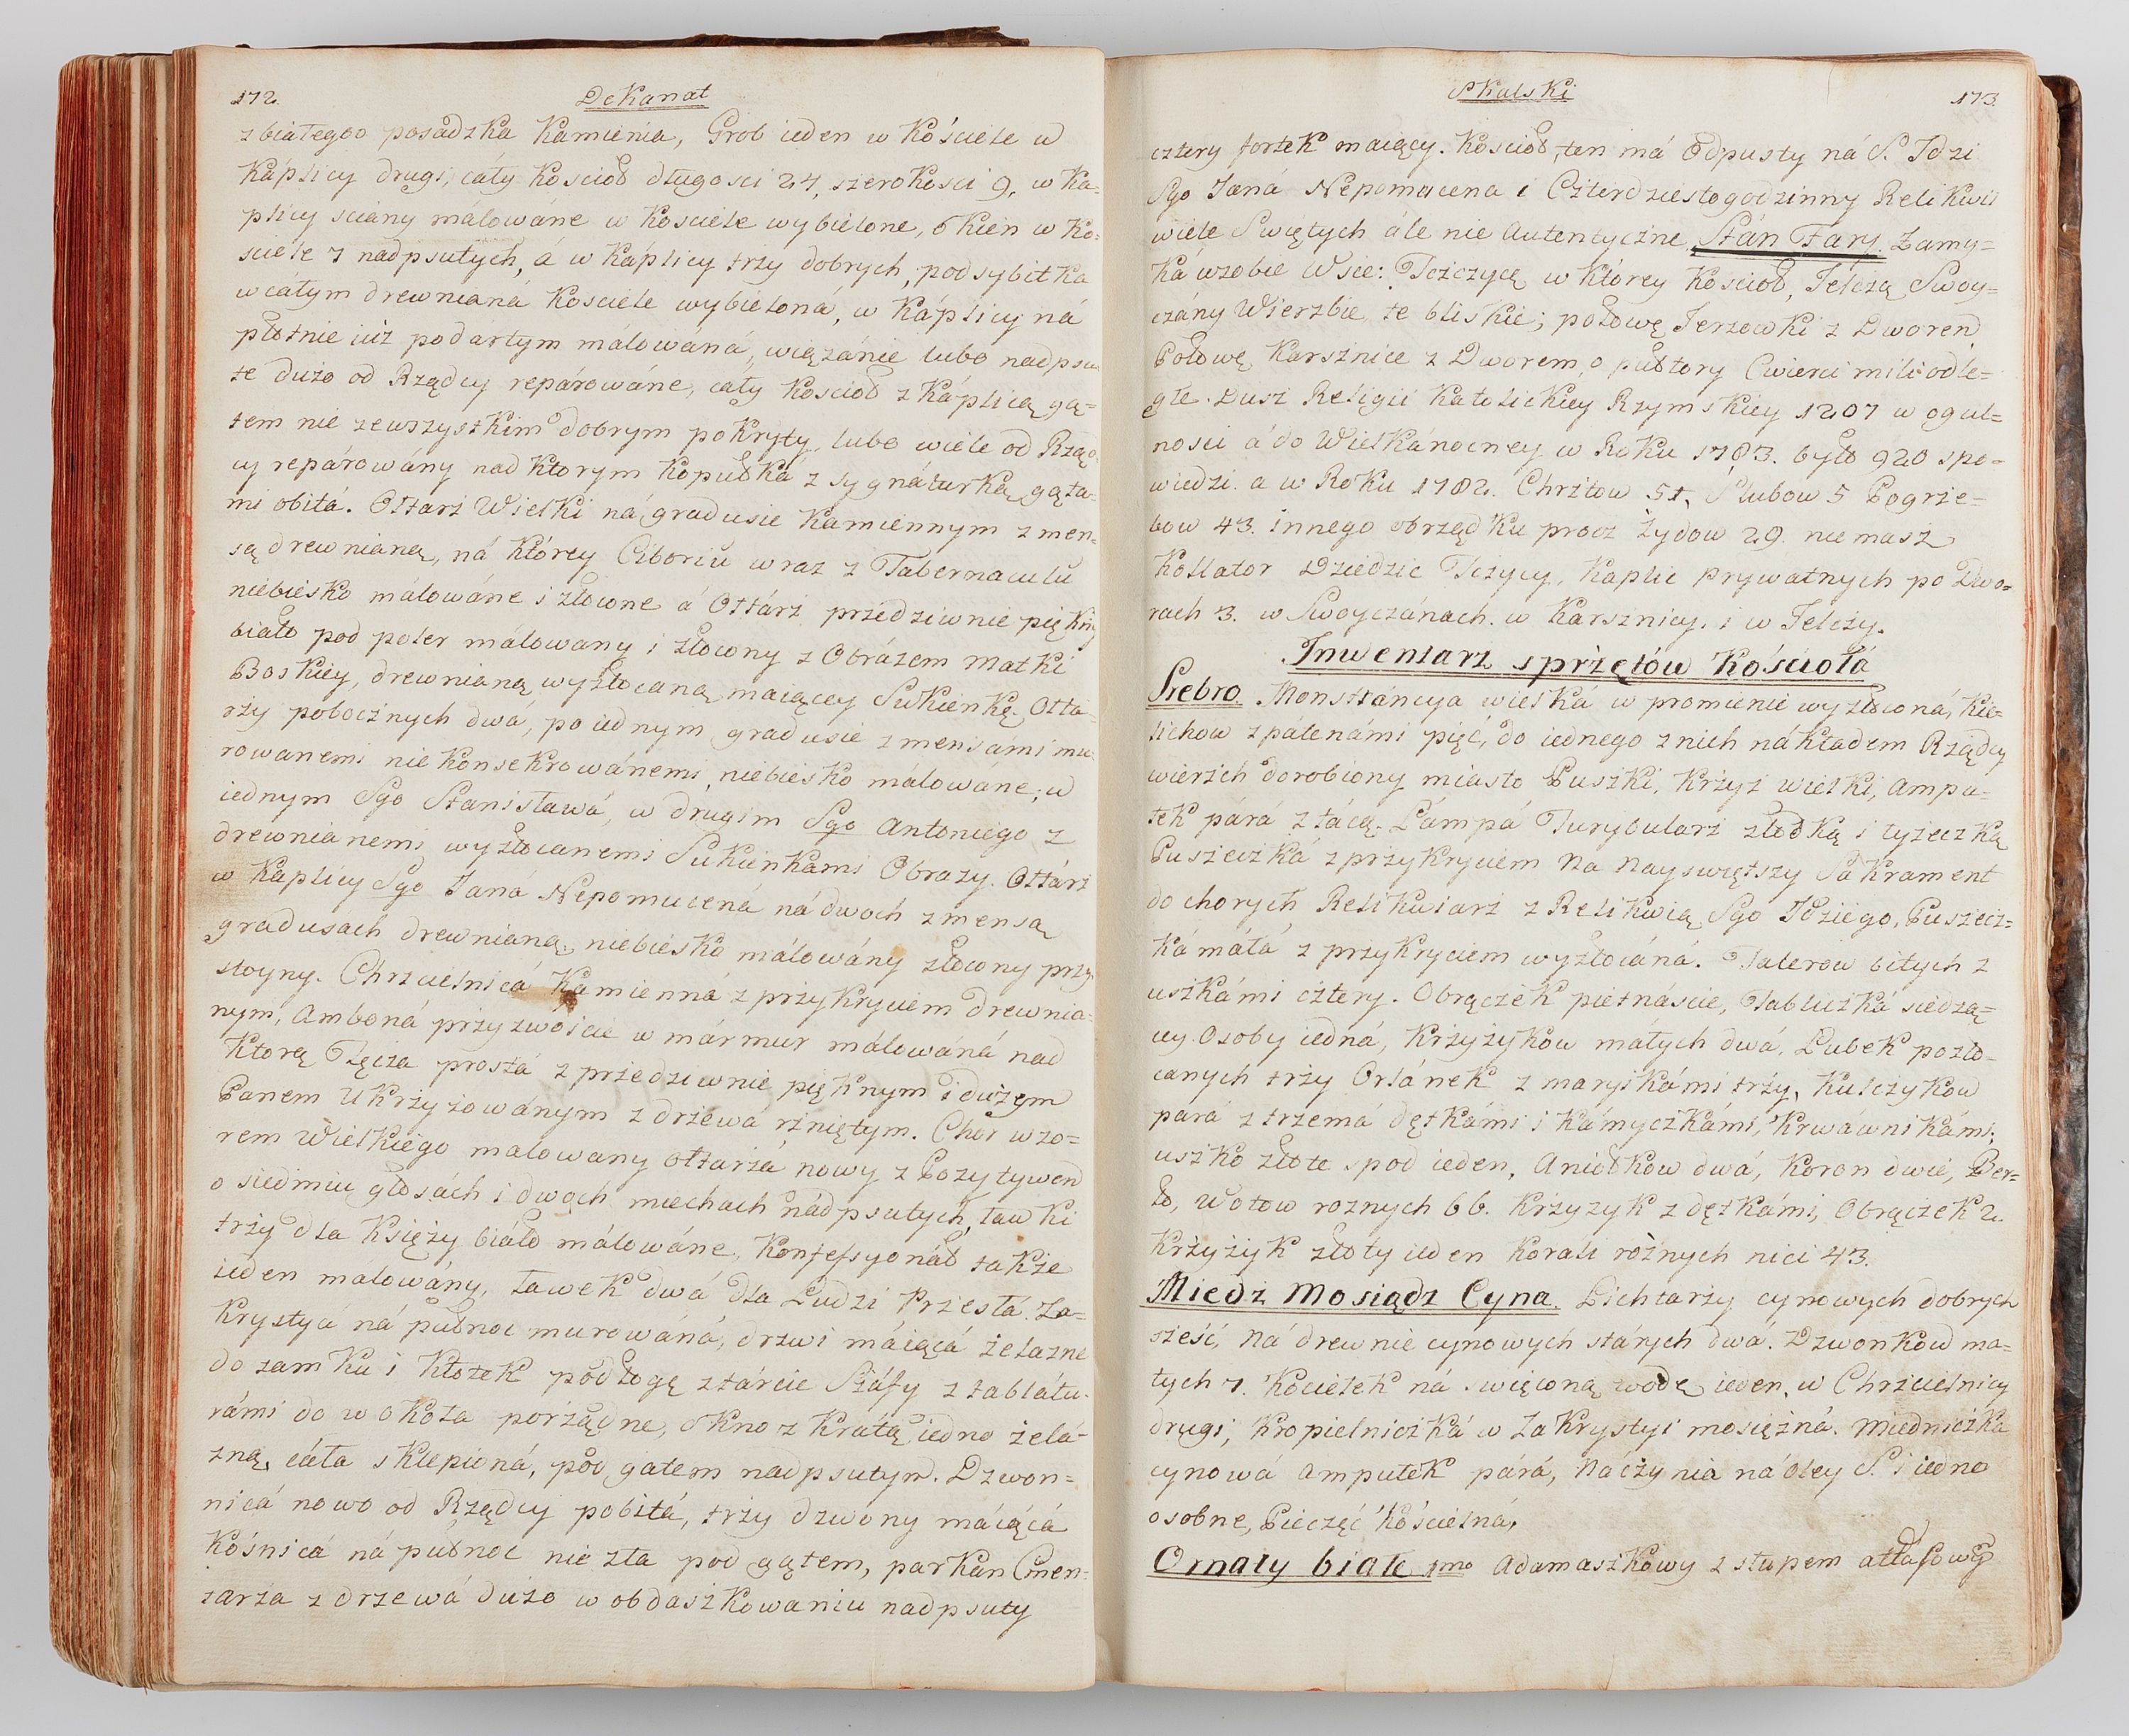 172.
DeKanat
zbiałegoo posadzka Kamienia, Grob ieden w Kościele w
Káplicy drugi, cáły Kosciół długosci 24, szerokosci 9, w Ka=
plicy sciany málowáne w Kosciele wybielone, okien w Ko=
sciele 7 nadpsutych, á w Káplicy trzy dobrych, podsybitka
wcáłym drewnianá Kosciele wybieloná, w Káplicy ná
płotnie iuż podartym málowaná, wiązánie lubo nadpsu
te dużo od Rządcy repárowáne, cáły Kosciół z Káplicą gą=
tem nie zewszystkim dobrym poKryty, lubo wiele od Rząd
cy repárowány nad Ktorym Kopułka z sygnáturką gąta=
mi obitá. Ołtarz Wielki ná gradusie Kamiennym z men=
są drewnianą, ná Którey Ciboriu wraz z Tabernaculu
niebiesko málowáne i złocone á Ołtárz przedziwnie piękny
biało pod poler málowany i złocony z Obrázem Matki
Boskiey, drewnianą wyzłocaną maiącey Sukienkę. Ołta=
rzy pobocznych dwá, po iednym gradusie z mensámi mu=
rowanemi nie Konsekrowánemi, niebiesko málowane; w
iednym Sgo Stanisława, w drugim Sgo Antoniego z
drewnianemi wyzłocanemi Sukienkami Obrazy. Ołtárz
w Kaplicy Sgo Janá Nepomucená ná dwoch z mensą
gradusach drewnianą, niebiesko málowány złocony przy
stoyny. Chrzcielnicá Kamienná z przykryciem drewnia=
nym, Amboná przyzwoicie w mármur málowáná nad
Ktorą Tęcza prosta z przedziwnie pięknym i dużym
Panem Ukrzyżowánym z drzewá rżniętym. Chor wzo=
rem Wielkiego malowany ołtarzá nowy z Pozytywem
o siedmiu głosách i dwoch miechach nádpsutych, ławki
trzy dla Księży biáło málowáne, Konfessyonał także
ieden málowány, ławek dwá dla Ludzi Przestá. Za=
Krystyá ná pułnoc murowáná, drzwi máiącá żelazne
do zamku i Kłotek podłogę z tárcic Száfy z tablátu=
rámi do wokoła porządne, oKno z Krátą iedno żelá=
zną, cáła sklepioná, pod gatem nadpsutym. Dzwon=
nicá nowo od Rządcy pobitá, trzy dzwony máiącá
Kośnicá ná pułnoc nie zła pod gątem, parkan Cmen=
tarza z drzewá dużo w obdaszkowaniu nadpsuty
SKalski
173.
cztery fortek maiący. Kosciół ten má Odpusty ná S. Idzi
Sgo Janá Nepomucena i Czterdziestogodzinny Relikwii
wiele Swiętych ále nie Autentyczne. Stán Fary. Zamy=
Ká wsobie Wsie: Tczczycę w Którey Kosciół, Jelczą Swoy=
czány Wierzbie te bliskie; połowę Jerzowki z Dworem
Połowę Karsznice z Dworem, o pułtory Cwierci mili odle=
głe. Dusz Religii Katolickiey Rzymskiey 1207 w ogul=
nosci á do Wielkánocney w Roku 1783. było 920 spo=
wiedzi. a w Roku 1782. Chrztow 51, Slubow 5 Pogrze=
bow 43. innego obrządku procz Żydow 29. nie masz
Kollator Dziedzic Tczycy. Kaplic prywatnych po Dwo=
rach 3. w Swoyczánach. w Karsznicy. i w Jelczy.
Inwentarz sprzętów Kościołá
Srebro. Monstráncya wielká w promienie wyzłoconá, Kie=
lichow z pátenámi pięć, do iednego z nich nákładem Rządcy
wierzch dorobiony miasto Puszki, Krzyż wielki, Ampu=
łek párá z tácą. Lámpá Turybularz złodką i łyżeczką
Puszeczká z przykryciem Na Nayswiętszy Sákrament
do chorych Relikwiarz z Relikwią Sgo Idziego, Puszecz=
ká máłá z przykryciem wyzłocáná. Talerow bitych z
uszkámi cztery. Obrączek pietnáście, Tabliczká siedzą=
cy Osoby iedná, Krzyżyków małych dwá, Lubek pozło=
canych trzy Orlánek z maryikámi trzy, Kulczykow
pará z trzemá dętkámi i Kámyczkámi, Krwáwnikámi;
uszko złote spod ieden, Aniołkow dwá, Koron dwie, Ber=
ło, Wotow roznych 66. Krzyżyk z dętkámi, Obrączek 2.
Krzyżyk złoty ieden Korali różnych nici 43.
Miedź Mosiądz Cyna. Lichtarzy cynowych dobrych
sześć, Ná drewnie cynowych stárych dwá. Dzwonkow ma=
łych 7. Kociełek ná swięconą wodę ieden, w Chrzcielnicy
drugi, Kropielniczká w Zakrystyi mosiężná. Miedniczka
cynowá Ampułek párá, Naczynia ná Oley S. i iedno
osobne, Pieczęć Kościelná,
Ornaty białe 1mo Adamaszkowy z słupem atłasowym